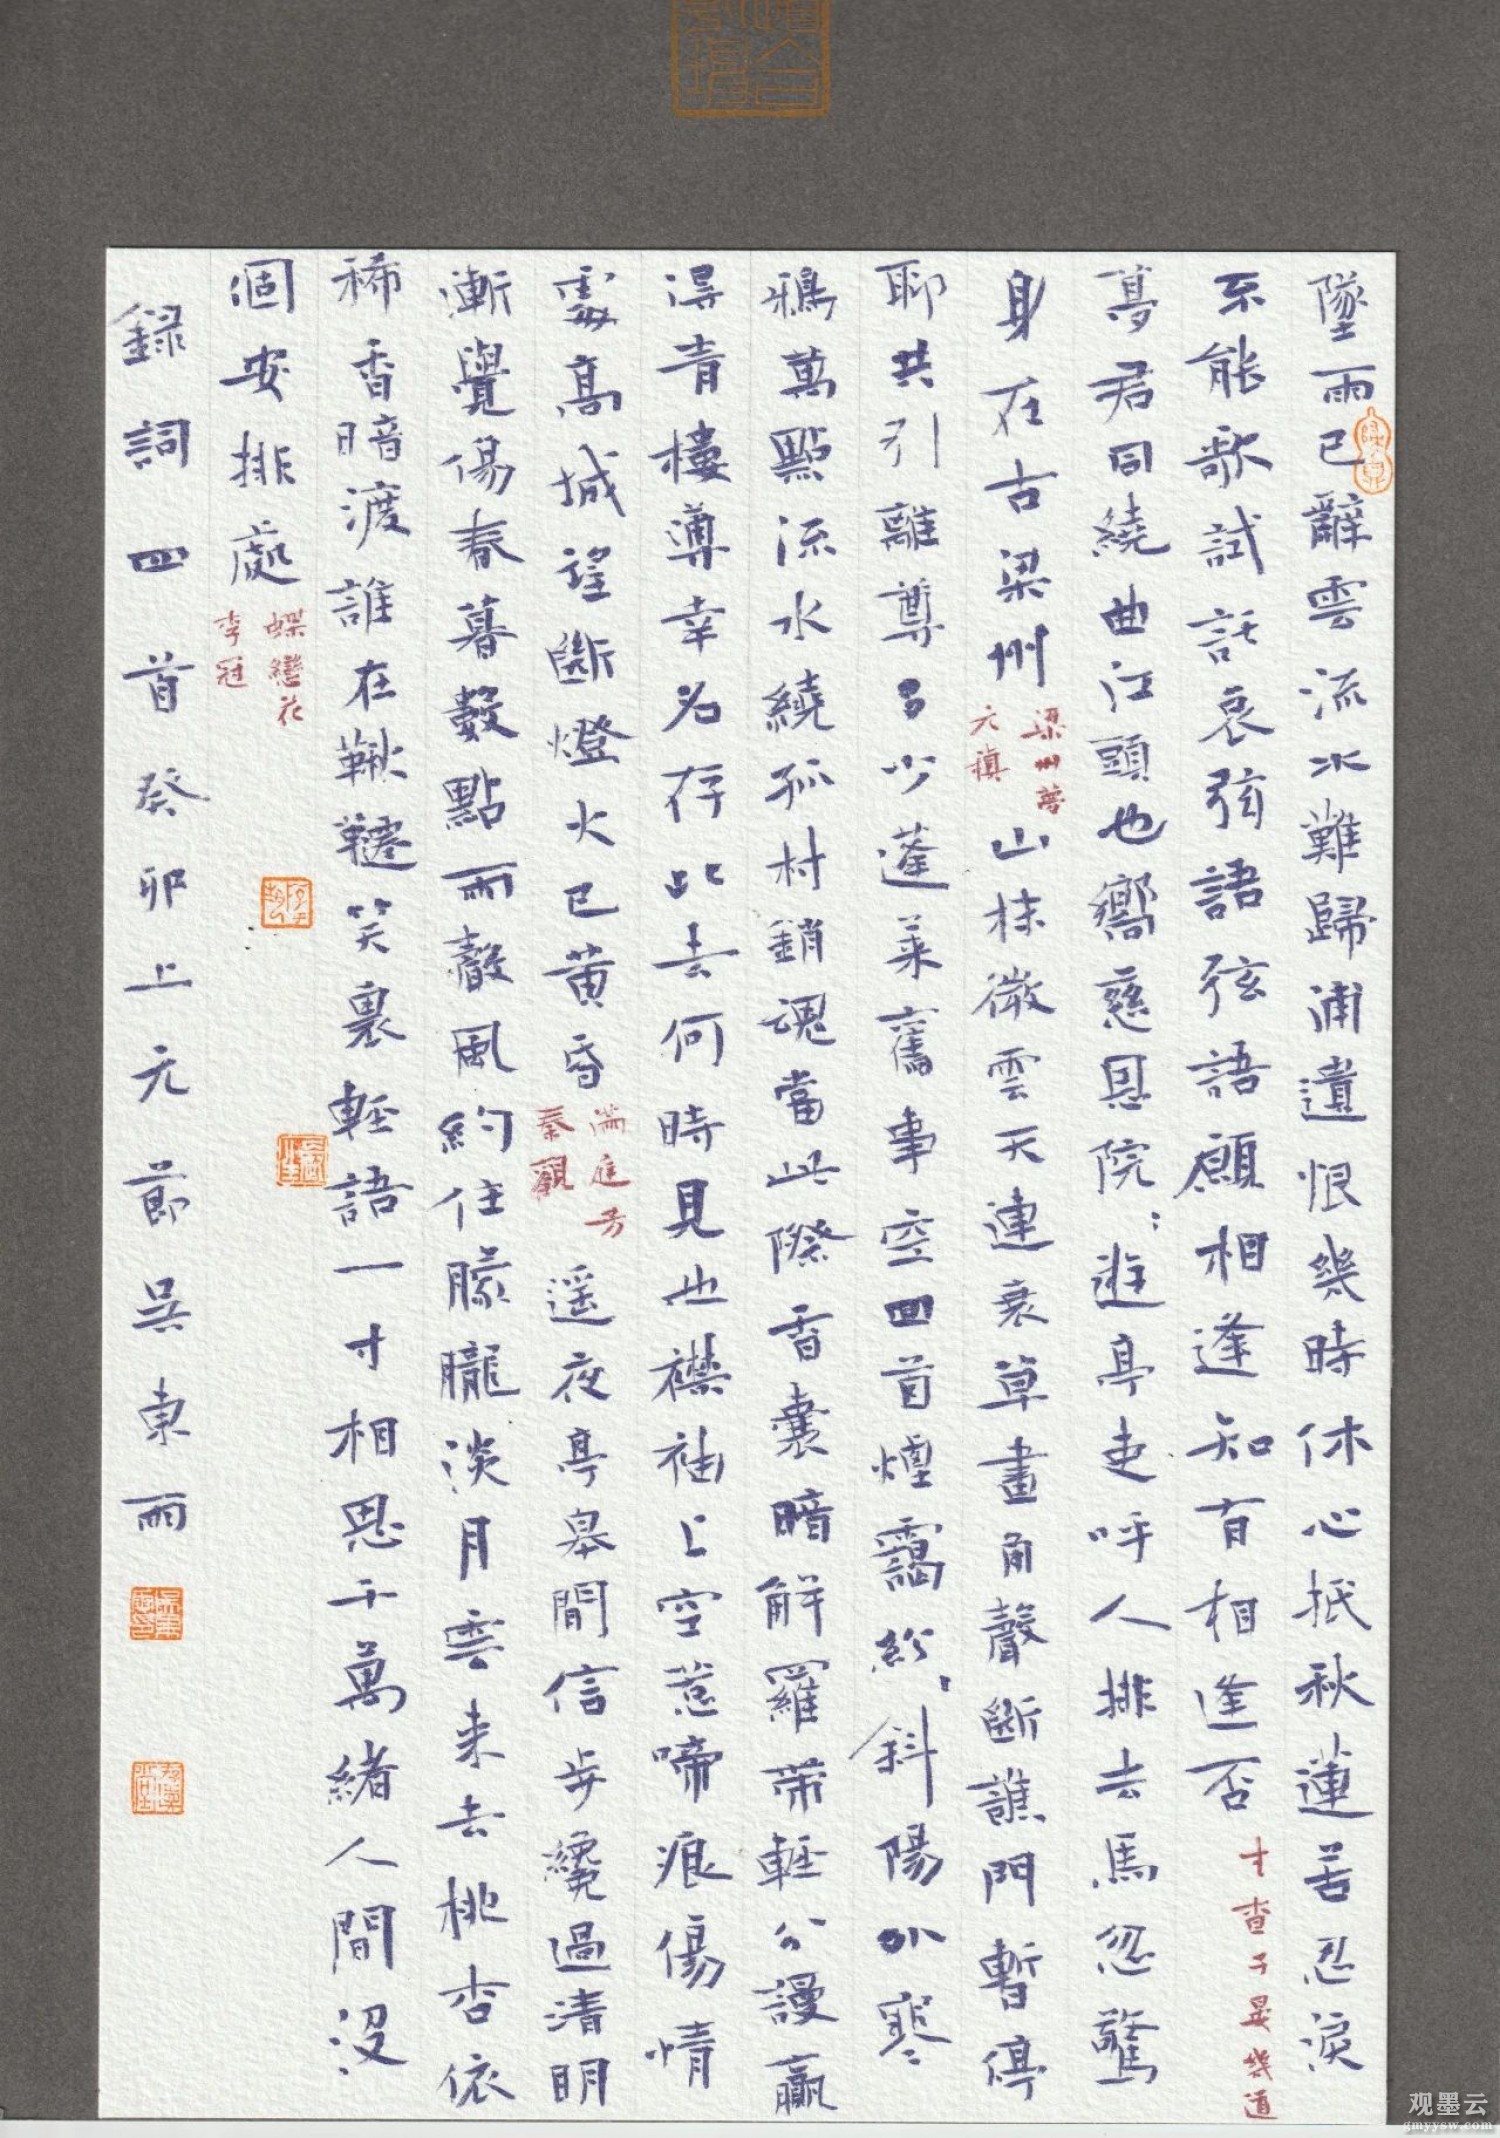 墜雨已辭雲流水難歸浦遺恨幾時休心抵秋蓮苦忍淚
不能歌試託哀弦語弦語願相逢知有相逢否
生查子晏幾道
夢君同繞曲江頭也嚮慈恩院〻遊亭吏呼人排去馬忽驚
身在古梁州
梁州夢
元稹
山抹微雲天連衰草畫角聲斷譙門暫停
聊共引離尊多少蓬萊舊事空回首煙靄紛〻斜陽外寒
鴉萬點流水繞孤村銷魂當此際香囊暗解羅帶輕分謾贏
得青樓薄幸名存此去何時見也襟袖上空惹啼痕傷情
處高城望斷燈火已黃昏
滿庭芳
秦觀
遥夜亭皋閒信步纔過清明
漸覺傷春暮數點雨聲風約住朦朧淡月雲来去桃杏依
稀香暗渡誰在鞦韆笑裏輕語一寸相思千萬緒人間沒
個安排處
蝶戀花
李冠
録詞四首癸卯上元節吳東雨
观墨云
gmyysw.com